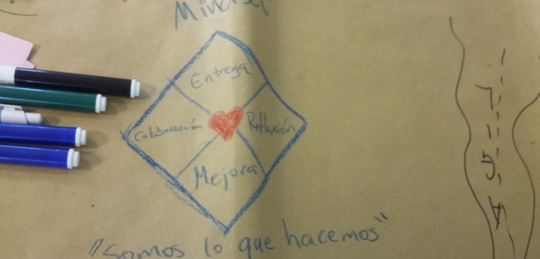 Entrega
Colaboración
Reflexión
Mejora
"Somos lo que hacemos"